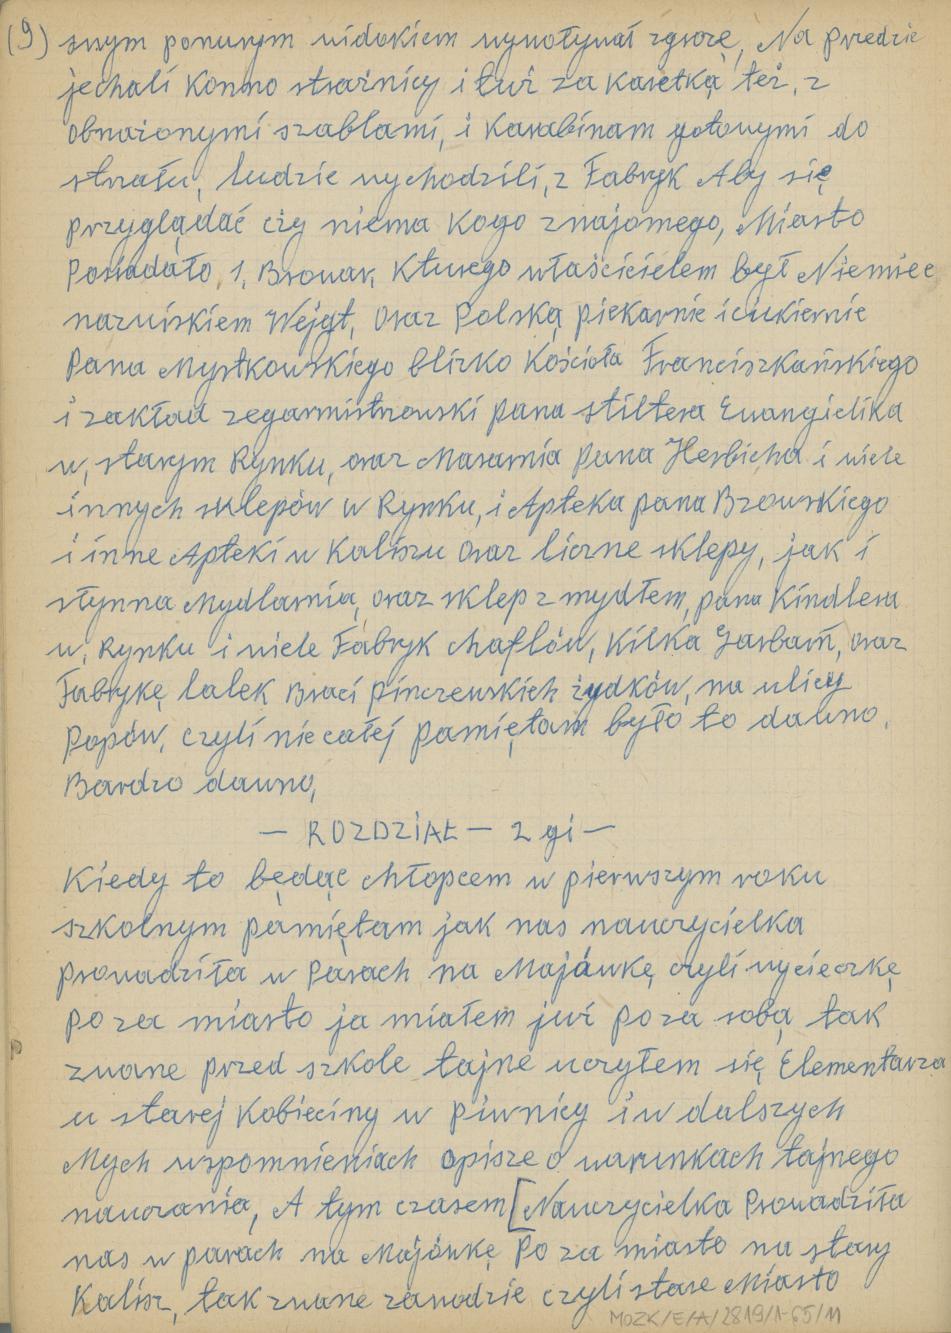 (9) snym ponurym widokiem wywoływał zgrozę, Na przedzie
jechali Konno strażnicy i tuż za karetką też, z
obnażonymi szablami, i Karabinam gotowymi do
strzału, ludzie wychodzili, z Fabryk Aby się
przyglądać czy niema Kogo znajomego, Miasto
Posiadało, 1, Browar, Którego właścicielem był Niemiec
nazwiskiem Wejgt, oraz Polską piekarnie i cukiernie
Pana Mystkowskiego blizko Kościoła Franciszkańskiego
i zakład zegarmistrzowski pana Stiltera Ewangielika
w, starym Rynku, oraz Masarnia pana Herbicha i wiele
innych sklepów w Rynku, i Apteka pana Brzowskiego
i inne Apteki w Kaliszu oraz liczne sklepy, jak i
słynna Mydlarnia, oraz sklep z mydłem, pana Kindlera
w, Rynku i wiele Fabryk Chaftów, Kilka Garbarń, oraz
Fabrykę lalek Braci pinczewskich żydków, na ulicy
Popów, czyli nie całej pamiętam było to dawno,
Bardzo dawno,
— ROZDZiAŁ — 2 gi —
Kiedy to będąc chłopcem w pierwszym roku
szkolnym pamiętam jak nas nauczycielka
prowadziła w Parach na Majówkę czyli wycieczkę
po za miasto ja miałem już po za sobą tak
zwane przed szkole tajne uczyłem się Elementarza
u starej Kobieciny w piwnicy i w dalszych
Mych wspomnieniach opisze o warunkach tajnego
nauczania, A tym czasem [Nauczycielka Prowadziła
nas w parach na Majówkę Po za miasto na stary
Kalisz, tak zwane zawodzie czyli stare Miasto
MOZK/E/A/2819/1-65/11